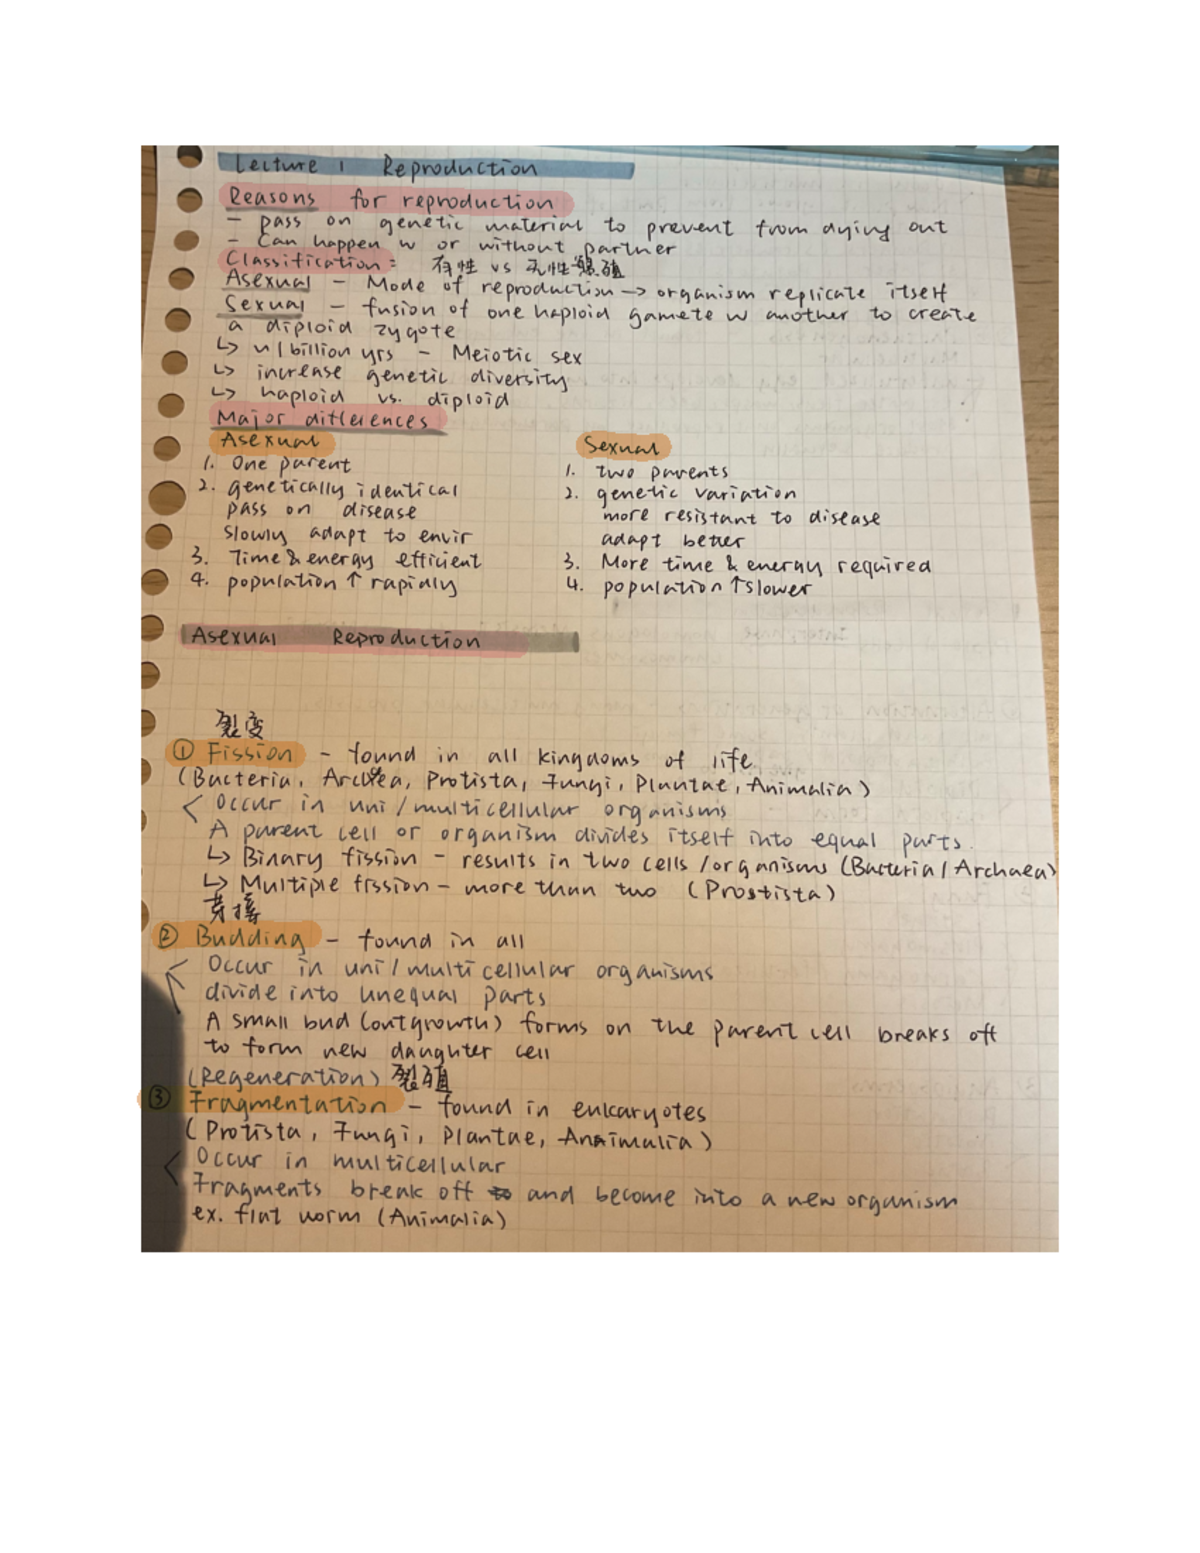 Lecture 1 Reproduction
Reasons for reproduction
- pass on genetic material to prevent from dying out
- Can happen w or without partner
Classification: 有性 vs 无性繁殖
Asexual - Mode of reproduction → organism replicate itself
Sexual - fusion of one haploid gamete w another to create
a diploid zygote
↳ n/billion yrs - Meiotic sex
↳ increase genetic diversity
↳ haploid vs. diploid
Major differences
Asexual
1. One parent
2. genetically identical
pass on disease
slowly adapt to envir
3. Time & energy efficient
4. population ↑ rapidly
Sexual
1. two parents
2. genetic variation
more resistant to disease
adapt better
3. More time & energy required
4. population ↑ slower
Asexual Reproduction
裂变
① Fission - found in all kingdoms of life
(Bacteria, Archaea, Protista, Fungi, Plantae, Animalia)
< Occur in uni/multicellular organisms
A parent cell or organism divides itself into equal parts.
↳ Binary fission - results in two cells/organisms (Bacteria/Archaea)
↳ Multiple fission - more than two (Prostista)
② Budding - found in all
Occur in uni/multicellular organisms
divide into unequal parts
A small bud (outgrowth) forms on the parent cell breaks off
to form new daughter cell
(Regeneration) 裂殖
③ Fragmentation - found in eukaryotes
(Protista, Fungi, Plantae, Animalia)
< Occur in multicellular
Fragments break off and become into a new organism
ex. flat worm (Animalia)